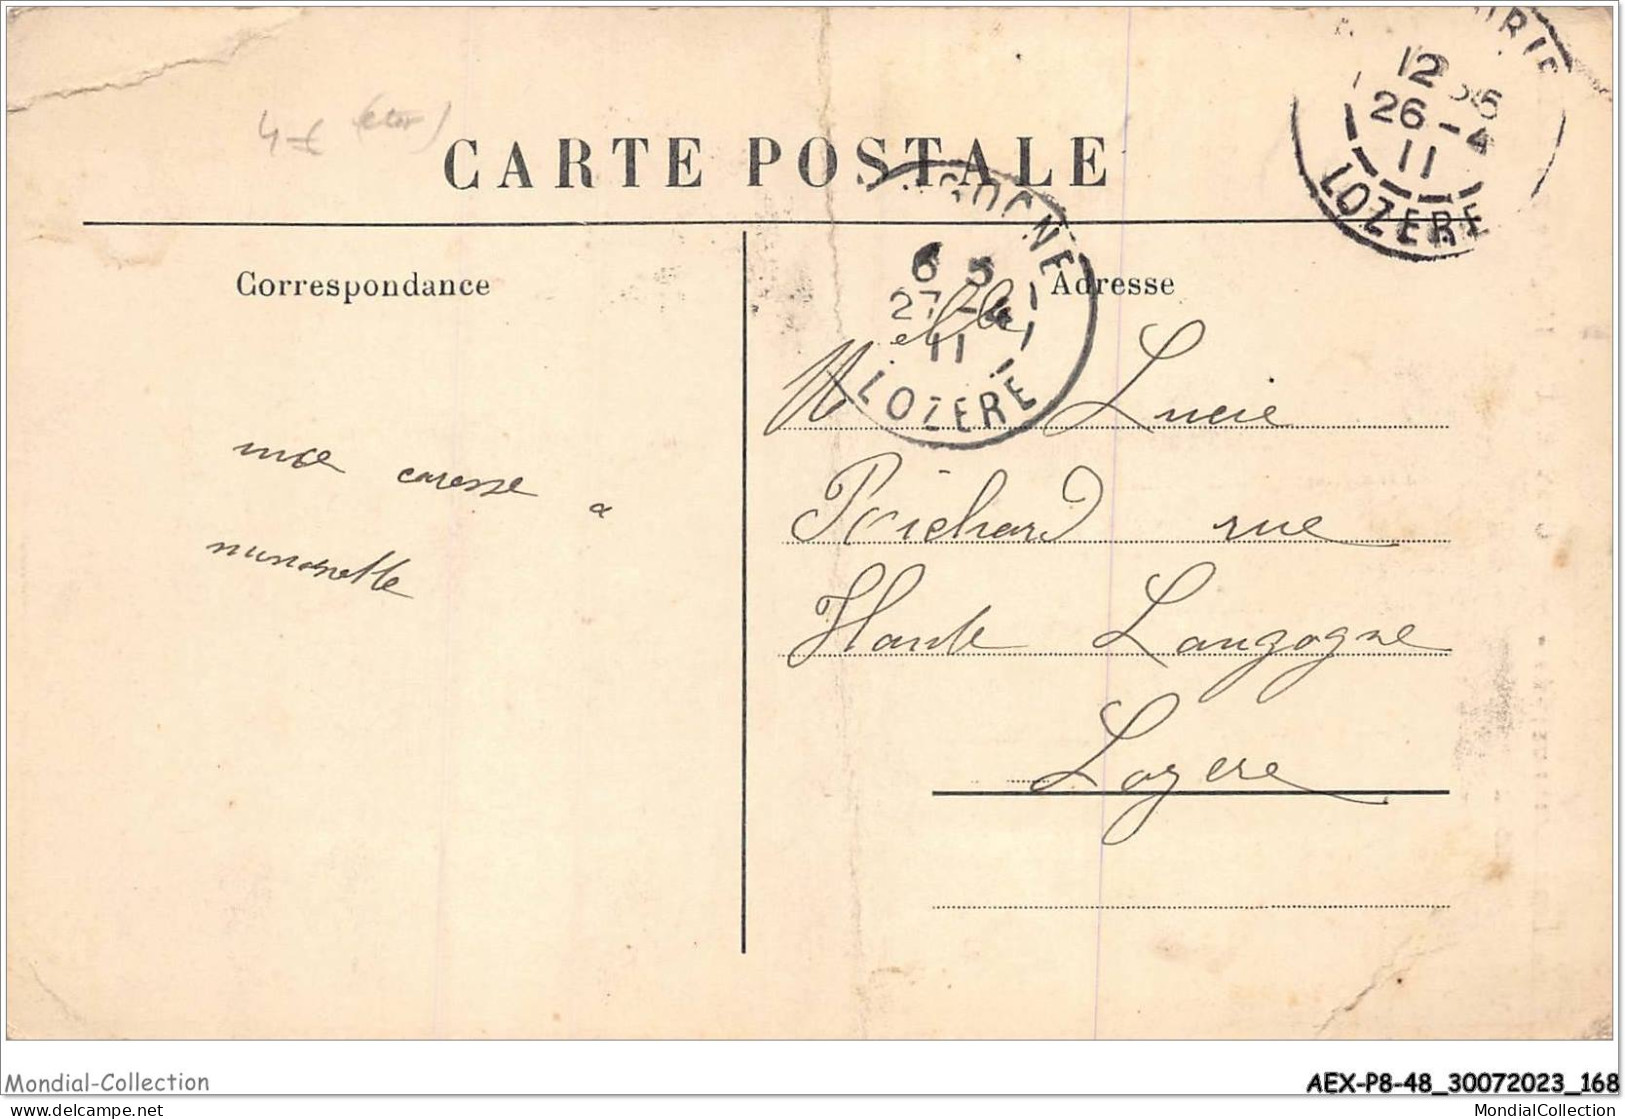 12
26-4
11
LOZERE
4€
CARTE POSTALE
GOGNE
6 5
27-4
11
LOZERE
Correspondance
Adresse
Melle Lucie
Richard rue
Haute Langogne
Lozere
une caresse a
mimosette
Mondial-Collection
AEX-P8-48_30072023_168
www.delcampe.net
MondialCollection